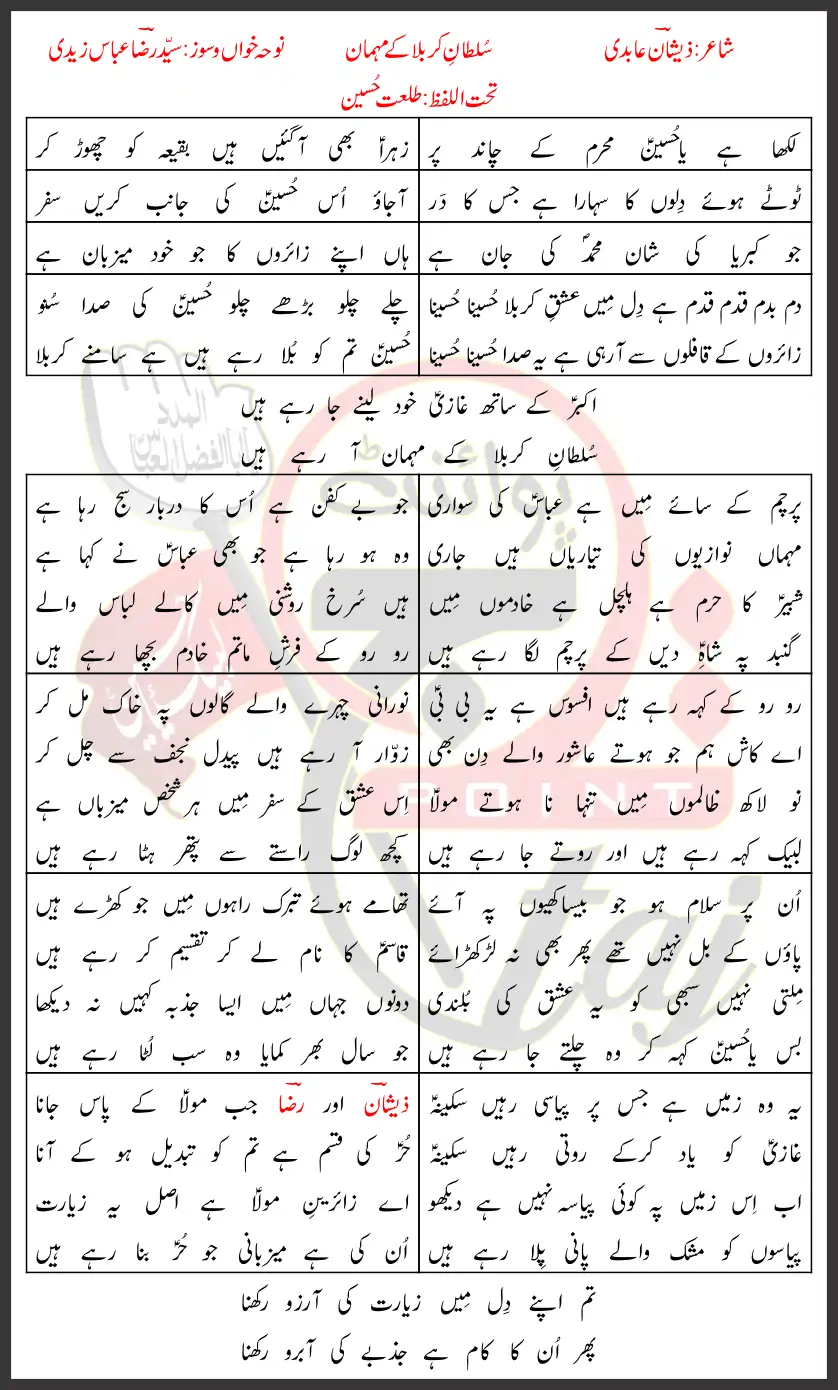 شاعر: ذیشانؔ عابدی سُلطانِ کربلا کے مہمان نوحہ خواں و سوز: سیّد رضاؔ عباس زیدی
تحت اللفظ: طلعت حُسین
لکھا ہے یاحُسینؑ محرم کے چاند پر
زہراؑ بھی آ گئیں ہیں بقیعہ کو چھوڑ کر
ٹوٹے ہوئے دِلوں کا سہارا ہے جس کا دَر
آجاؤ اُس حُسینؑ کی جانب کریں سفر
جو کبریا کی شان محمدؐ کی جان ہے
ہاں اپنے زائروں کا جو خود میزبان ہے
دم بدم قدم قدم ہے دِل مِیں عشقِ کربلا حُسینا حُسینا
زائروں کے قافلوں سے آرہی ہے یہ صدا حُسینا حُسینا
چلے چلو بڑھے چلو حُسینؑ کی صدا سُنو
حُسینؑ تم کو بُلا رہے ہیں ہے سامنے کربلا
اکبرؑ کے ساتھ غازیؑ خود لینے جا رہے ہیں
سُلطانِ کربلا کے مہمان آ رہے ہیں
پرچم کے سائے مِیں ہے عباسؑ کی سواری
مہماں نوازیوں کی تیاریاں ہیں جاری
شبیرؑ کا حرم ہے ہلچل ہے خادموں مِیں
گنبد پہ شاہِؑ دیں کے پرچم لگا رہے ہیں
جو بے کفن ہے اُس کا دربار سج رہا ہے
وہ ہو رہا ہے جو بھی عباسؑ نے کہا ہے
ہیں سُرخ روشنی مِیں کالے لباس والے
رو رو کے فرشِ ماتم خادم بچھا رہے ہیں
رو رو کے کہہ رہے ہیں افسوس ہے یہ بی بیؑ
اے کاش ہم جو ہوتے عاشور والے دِن بھی
نو لاکھ ظالموں مِیں تنہا نا ہوتے مولاؑ
لبیک کہہ رہے ہیں اور روتے جا رہے ہیں
نورانی چہرے والے گالوں پہ خاک مل کر
زوّار آ رہے ہیں پیدل نجف سے چل کر
اِس عشق کے سفر مِیں ہر شخص میزباں ہے
کچھ لوگ راستے سے پتھر ہٹا رہے ہیں
اُن پر سلام ہو جو بیساکھیوں پہ آئے
پاؤں کے بل نہیں تھے پھر بھی نہ لڑکھڑائے
مِلتی نہیں سبھی کو یہ عشق کی بُلندی
بس یاحُسینؑ کہہ کر وہ چلتے جا رہے ہیں
تھامے ہوئے تبرک راہوں مِیں جو کھڑے ہیں
قاسمؑ کا نام لے کر تقسیم کر رہے ہیں
دونوں جہاں مِیں ایسا جذبہ کہیں نہ دیکھا
جو سال بھر کمایا وہ سب لُٹا رہے ہیں
یہ وہ زمیں ہے جس پر پیاسی رہیں سکینہؑ
غازیؑ کو یاد کرکے روتی رہیں سکینہؑ
اب اِس زمیں پہ کوئی پیاسہ نہیں ہے دیکھو
پیاسوں کو مشک والے پانی پِلا رہے ہیں
ذیشانؔ اور رضاؔ جب مولاؑ کے پاس جانا
حُرؑ کی قسم ہے تم کو تبدیل ہو کے آنا
اے زائرینِ مولاؑ ہے اصل یہ زیارت
اُن کی ہے میزبانی جو حُرؑ بنا رہے ہیں
تم اپنے دِل مِیں زیارت کی آرزو رکھنا
پھر اُن کا کام ہے جذبے کی آبرو رکھنا
المدد
یا ابالفضل العباس
پوائنٹ
POINT
taj